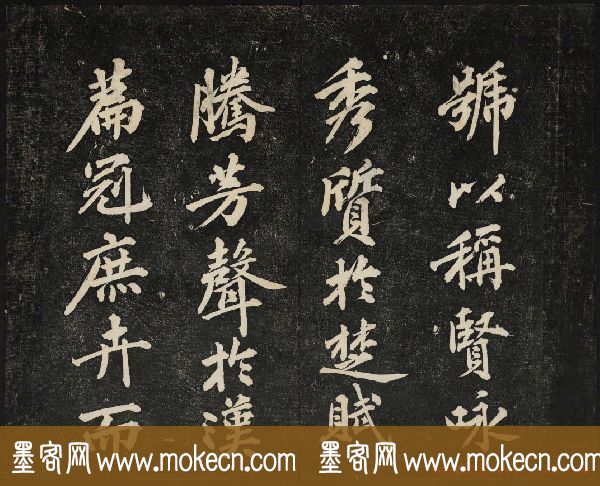 號以稱賢咏
秀質於楚賦
騰芳聲於漢
篇冠庶卉而
墨客网 www.mokecn.com 墨客网 www.mokecn.com